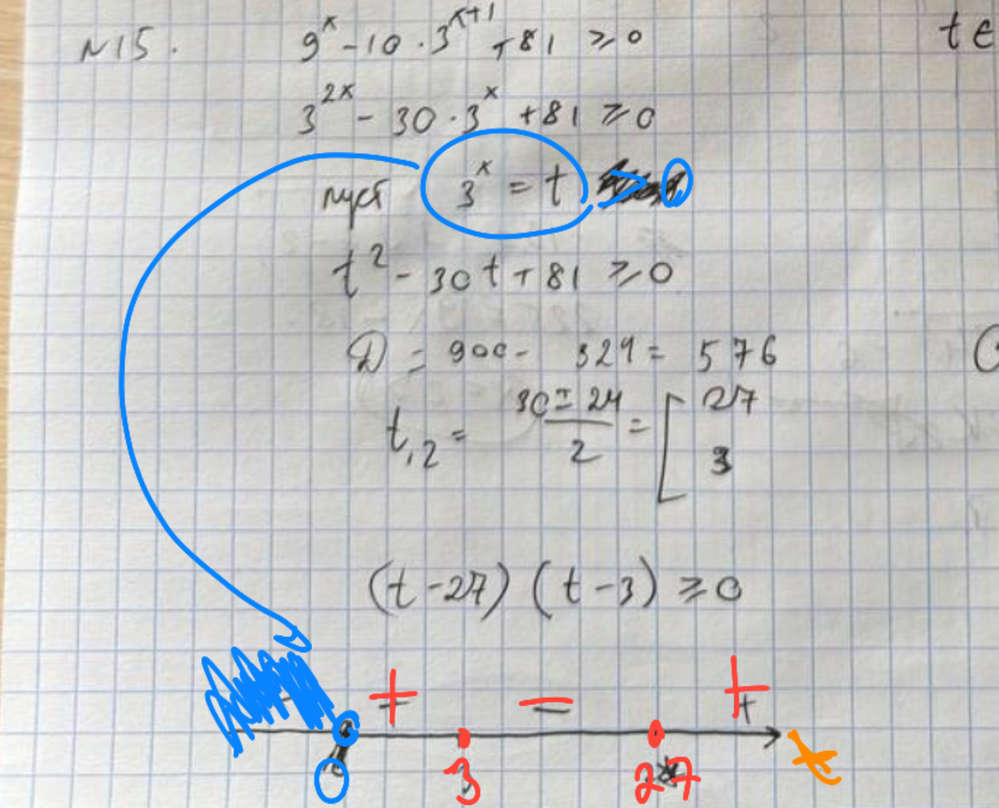 N15. 9^x - 10 · 3^{x+1} + 81 ≥ 0
t ∈
3^{2x} - 30 · 3^x + 81 ≥ 0
пуст 3^x = t > 0
t^2 - 30t + 81 ≥ 0
D = 900 - 324 = 576
t_{1,2} = \frac{30 ± 24}{2} = [ 27
3
(t - 27) (t - 3) ≥ 0
+ − +
0 3 27 t